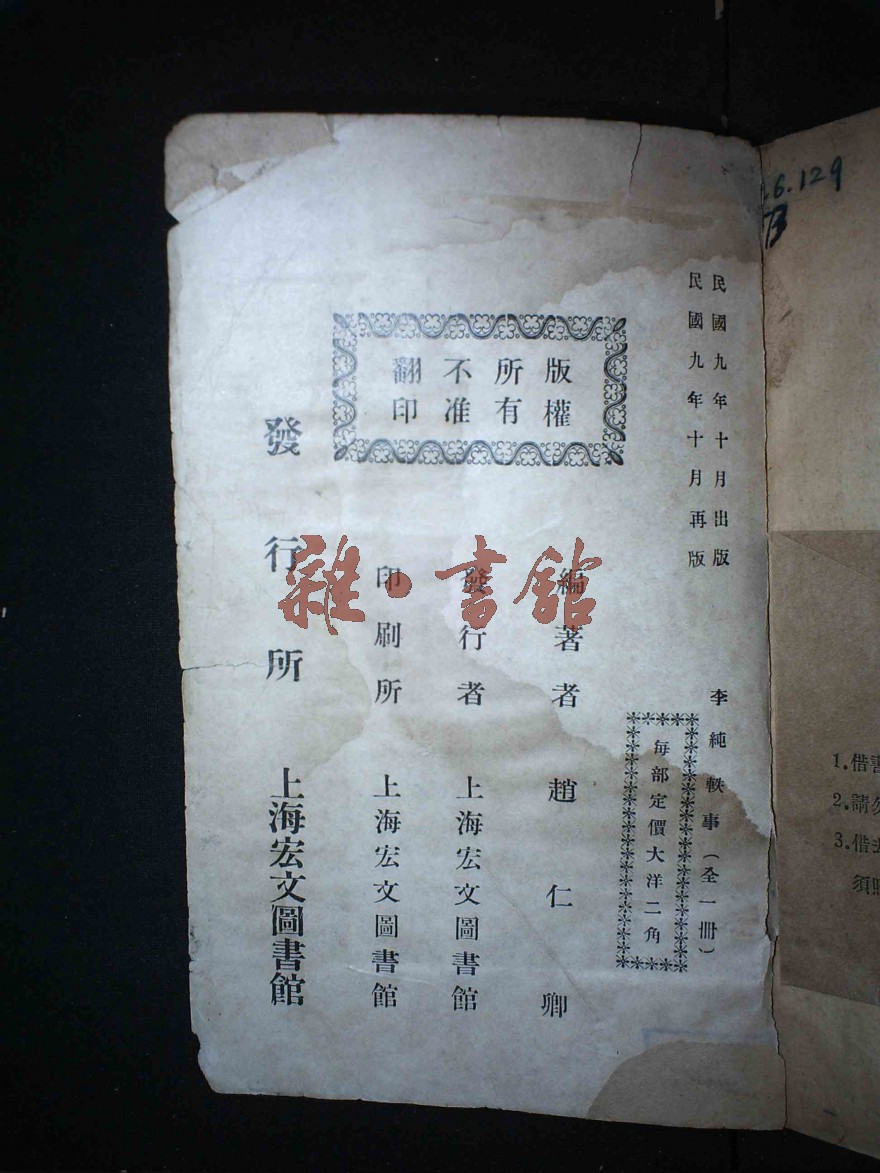 民國九年十月出版
民國九年十月再版
李純軼事（全一冊）
每部定價大洋二角
版權
所有
不准
翻印
編著者 趙仁卿
發行者 上海宏文圖書館
印刷所 上海宏文圖書館
發行所 上海宏文圖書館
雜·書館
6.129
B
1.借書
2.請勿
3.借去
須照